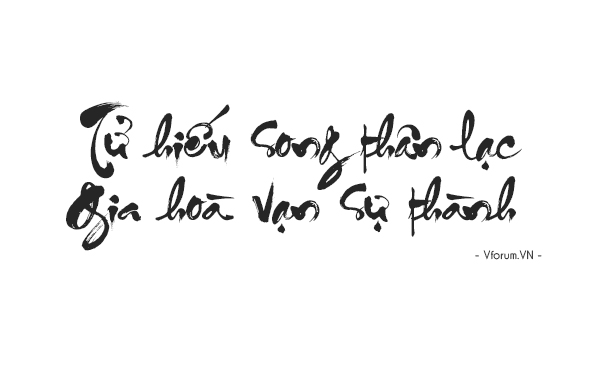 Tử hiếu song phân lạc
Gia hoà vạn sự thành
- Vforum.VN -